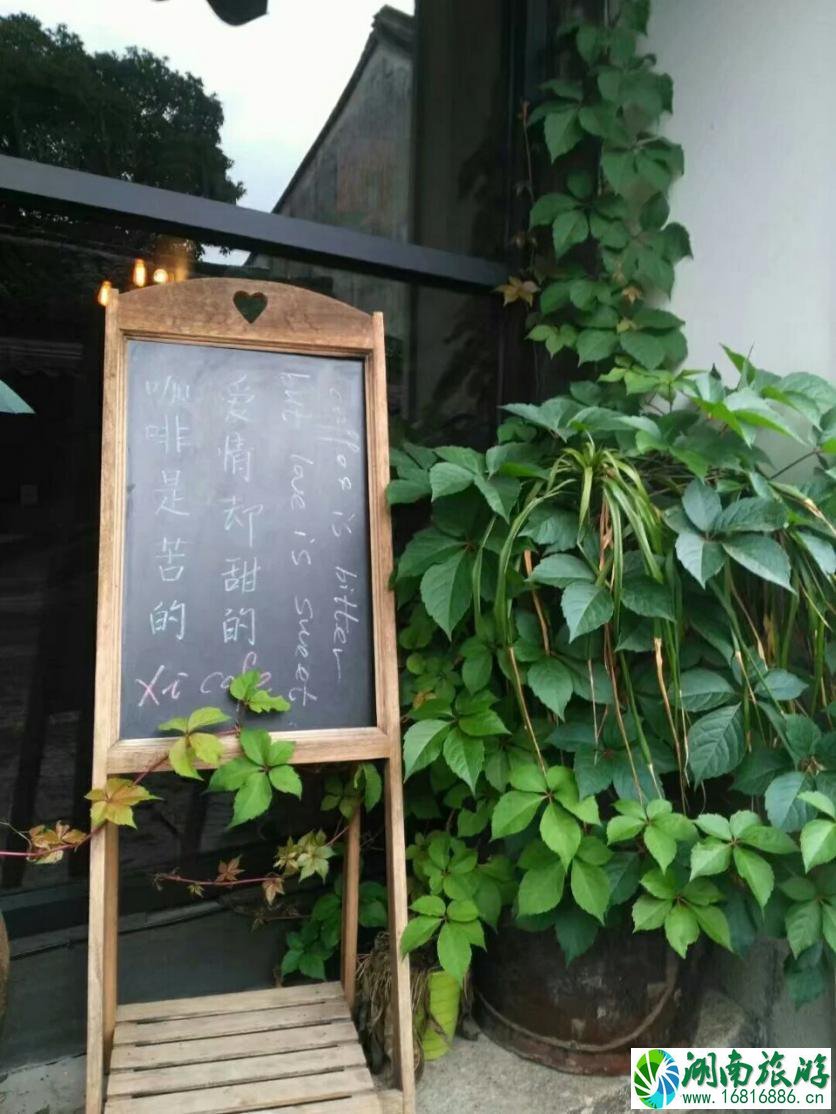 coffee is bitter
but love is sweet.
爱情却甜的
咖啡是苦的
Xi cafe
湖南旅游
www.16816886.cn